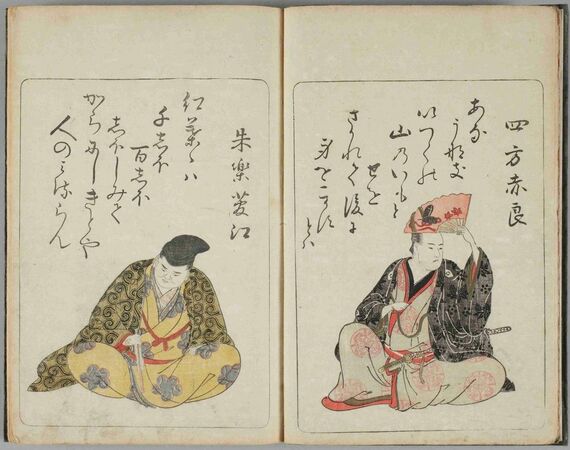 四方赤良
あな
うなき
いつくの
山のいもと
せを
さかれて後に
身をこかす
とハ
朱樂菅江
紅葉々ハ
千しほ
百しほ
しほしみて
からにしきとや
人のみるらん